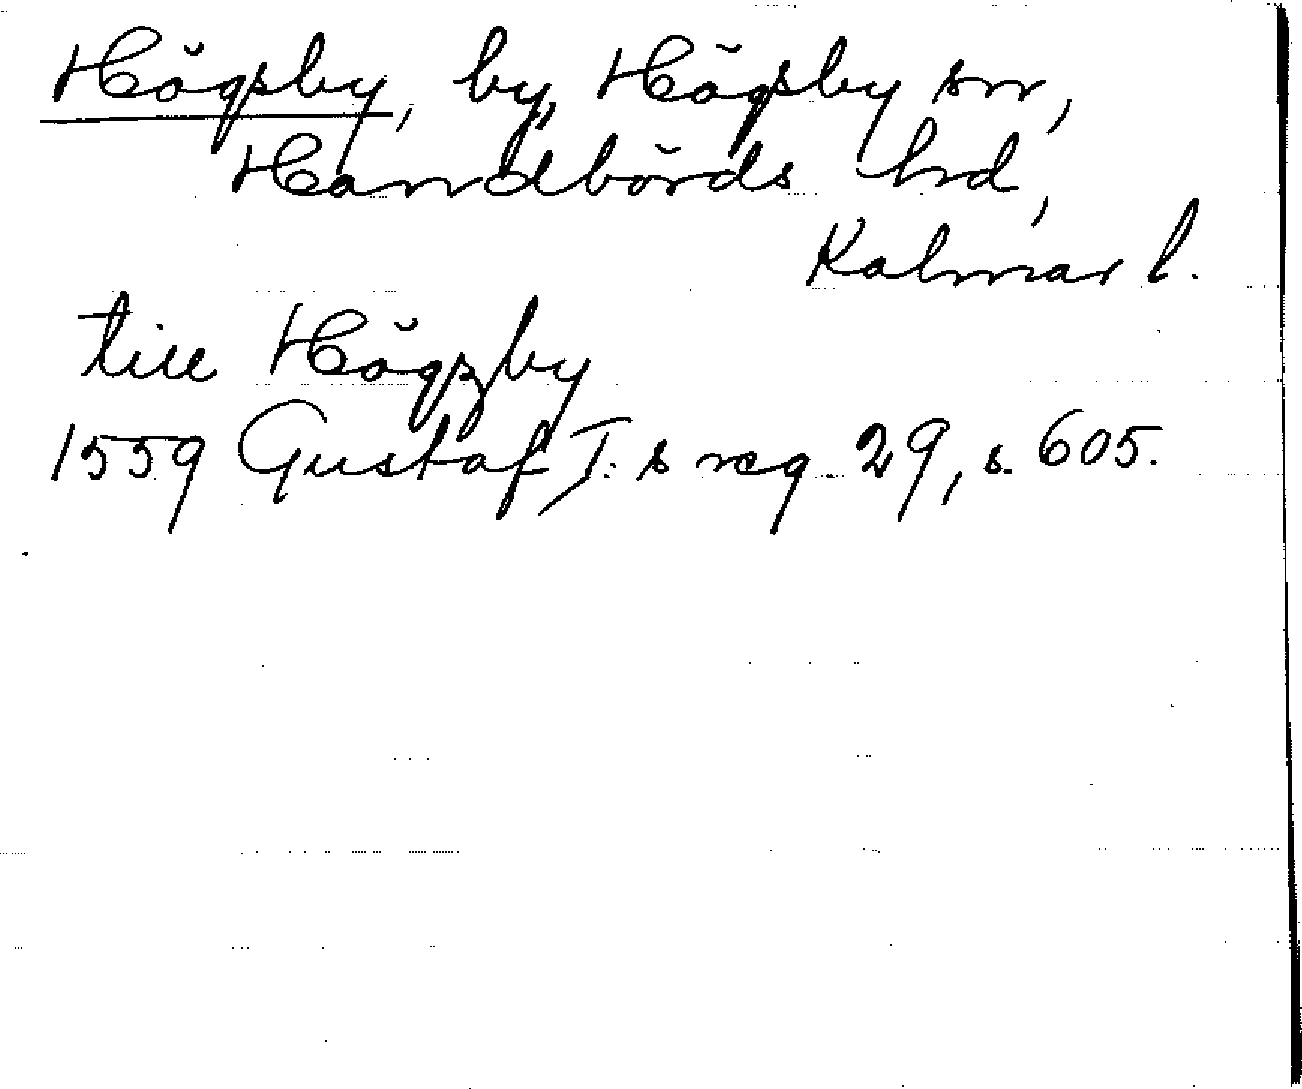 Högsby, by, Högsby sn,
Handbörds hd,
Kalmar l.
till Högzby
1559 Gustaf I:s reg 29, s. 605.